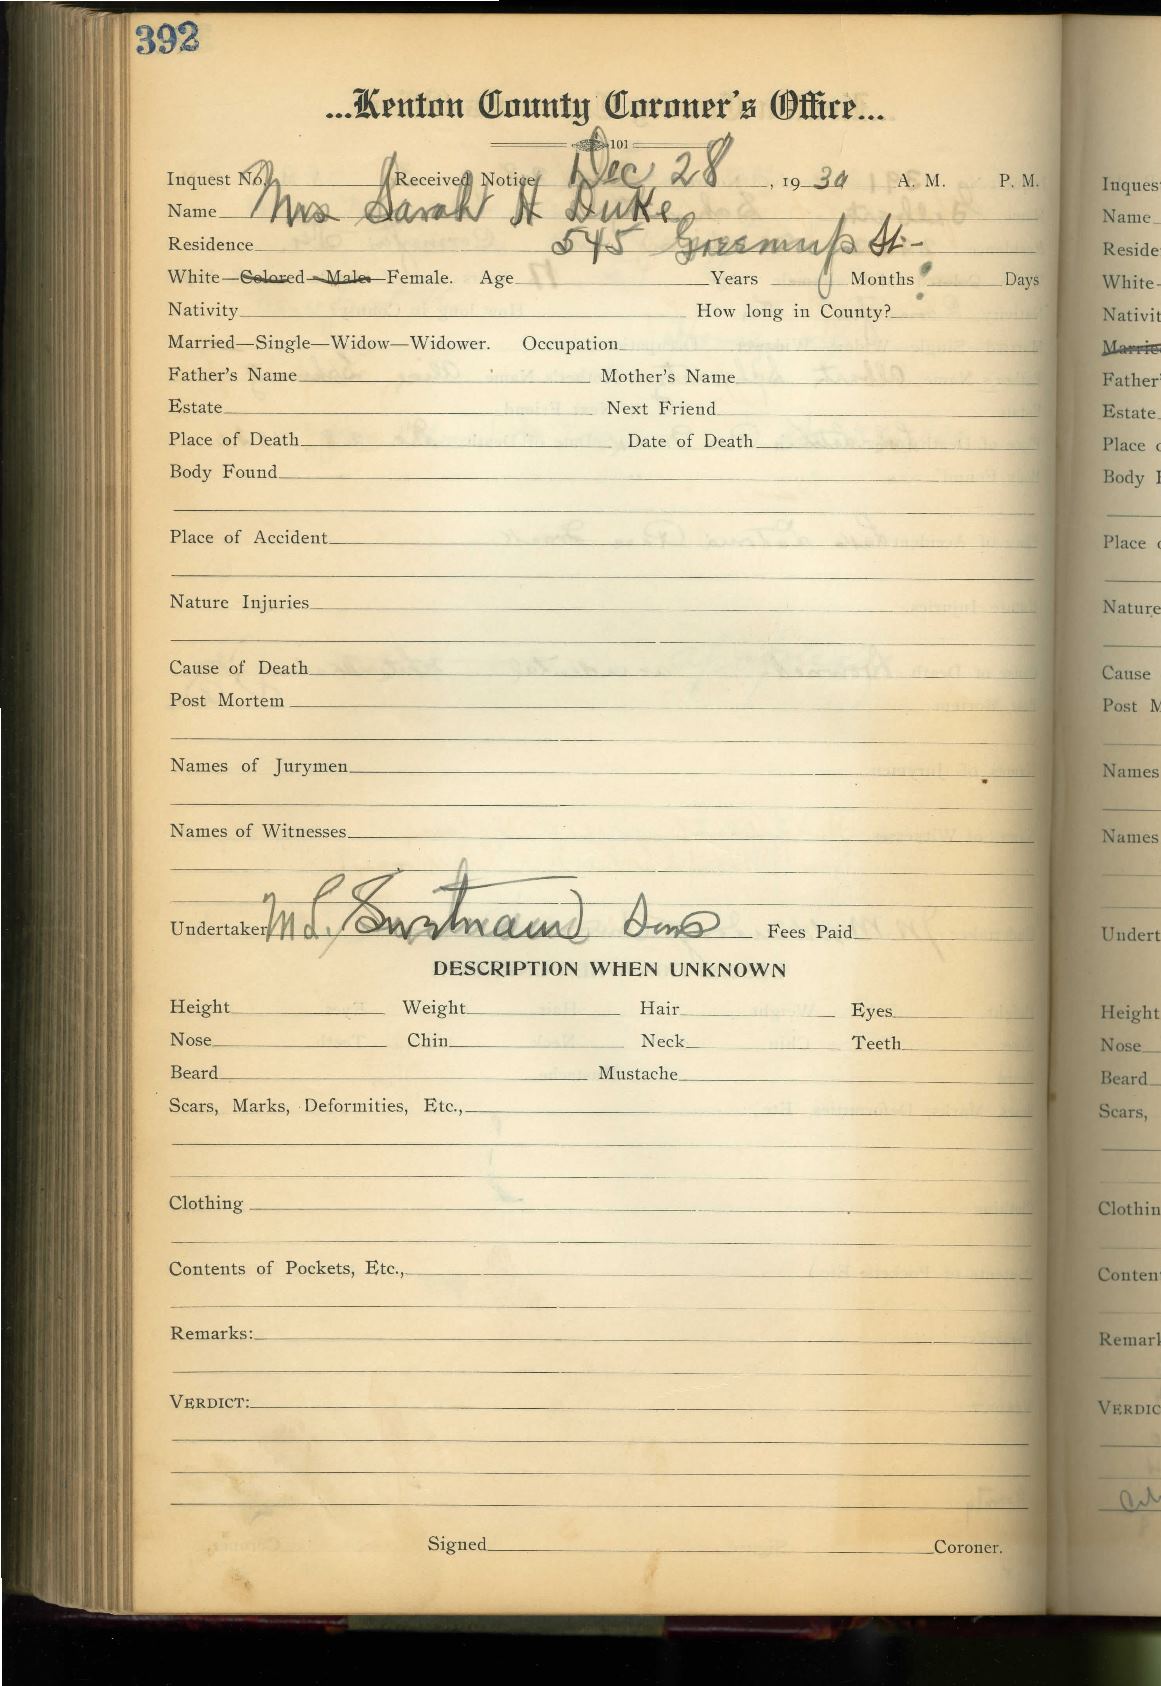 392
...Kenton County Coroner's Office...
101
Inquest No. Received Notice Dec 28, 1930 A. M. P. M.
Name Mrs Sarah H Duke
Residence 545 Greenup St-
White—Colored—Male—Female. Age Years Months Days
Nativity How long in County?
Married—Single—Widow—Widower. Occupation
Father's Name Mother's Name
Estate Next Friend
Place of Death Date of Death
Body Found
Place of Accident
Nature Injuries
Cause of Death
Post Mortem
Names of Jurymen
Names of Witnesses
Undertaker M L. Sons Fees Paid
DESCRIPTION WHEN UNKNOWN
Height Weight Hair Eyes
Nose Chin Neck Teeth
Beard Mustache
Scars, Marks, Deformities, Etc.,
Clothing
Contents of Pockets, Etc.,
Remarks:
VERDICT:
Signed Coroner.
Inques
Name
Reside
White-
Nativit
Marrie
Father'
Estate
Place o
Body F
Place o
Nature
Cause
Post M
Names
Names
Undert
Height
Nose
Beard
Scars,
Clothin
Conten
Remark
VERDIC